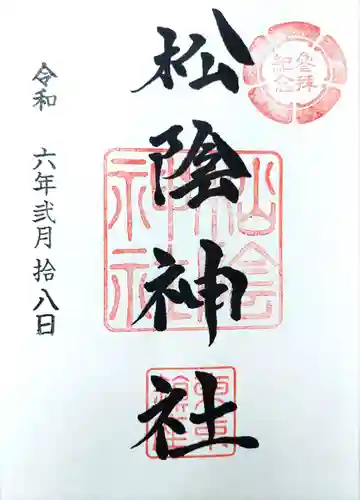 参拝
記念
松陰神社
松陰
神社
令和 六年 弐月 拾八日